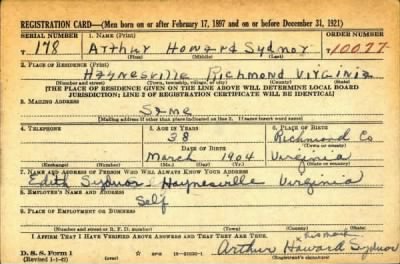 REGISTRATION CARD—(Men born on or after February 17, 1897 and on or before December 31, 1921)
SERIAL NUMBER 1. NAME (Print) ORDER NUMBER
178 Arthur Howard Sydnor 10077
(First) (Middle) (Last)
2. PLACE OF RESIDENCE (Print)
Haynesville Richmond Virginia
(Number and street) (Town, township, village, or city) (County) (State)
[THE PLACE OF RESIDENCE GIVEN ON THE LINE ABOVE WILL DETERMINE LOCAL BOARD
JURISDICTION; LINE 2 OF REGISTRATION CERTIFICATE WILL BE IDENTICAL]
3. MAILING ADDRESS
Same
[Mailing address if other than place indicated on line 2. If same insert word same]
4. TELEPHONE 5. AGE IN YEARS 6. PLACE OF BIRTH
38 Richmond Co
DATE OF BIRTH (Town or county)
March 1904 Virginia
(Exchange) (Number) (Mo.) (Day) (Yr.) (State or country)
7. NAME AND ADDRESS OF PERSON WHO WILL ALWAYS KNOW YOUR ADDRESS
Edith Sydnor - Haynesville Virginia
8. EMPLOYER'S NAME AND ADDRESS
Self
9. PLACE OF EMPLOYMENT OR BUSINESS
(Number and street or R. F. D. number) (Town) (County) (State)
I AFFIRM THAT I HAVE VERIFIED ABOVE ANSWERS AND THAT THEY ARE TRUE.
his mark
D. S. S. Form 1 Arthur X Howard Sydnor
(Revised 1-1-42) (Registrant's signature)